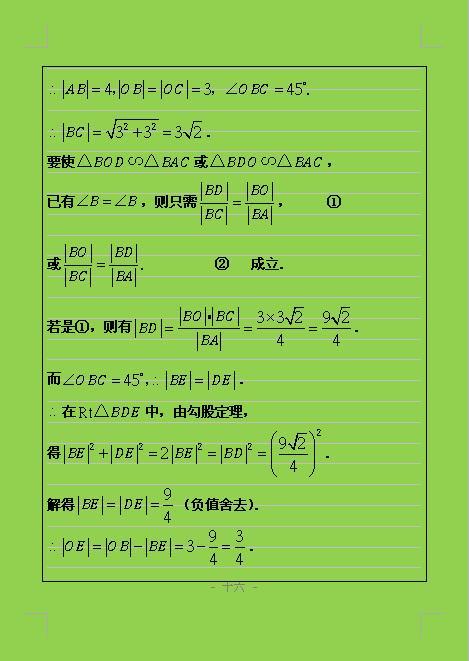 ∴ |AB|=4,|OB|=|OC|=3, ∠OBC=45°.
∴ |BC|=√(3²+3²)=3√2.
要使△BOD∽△BAC或△BDO∽△BAC,
已有∠B=∠B,则只需|BD|/|BC|=|BO|/|BA|, ①
或|BO|/|BC|=|BD|/|BA|. ② 成立.
若是①,则有|BD|=|BO|·|BC|/|BA|=3×3√2/4=9√2/4.
而∠OBC=45°,∴|BE|=|DE|.
∴ 在Rt△BDE中,由勾股定理,
得|BE|²+|DE|²=2|BE|²=|BD|²=(9√2/4)².
解得|BE|=|DE|=9/4 (负值舍去).
∴ |OE|=|OB|-|BE|=3-9/4=3/4.
- 十六 -